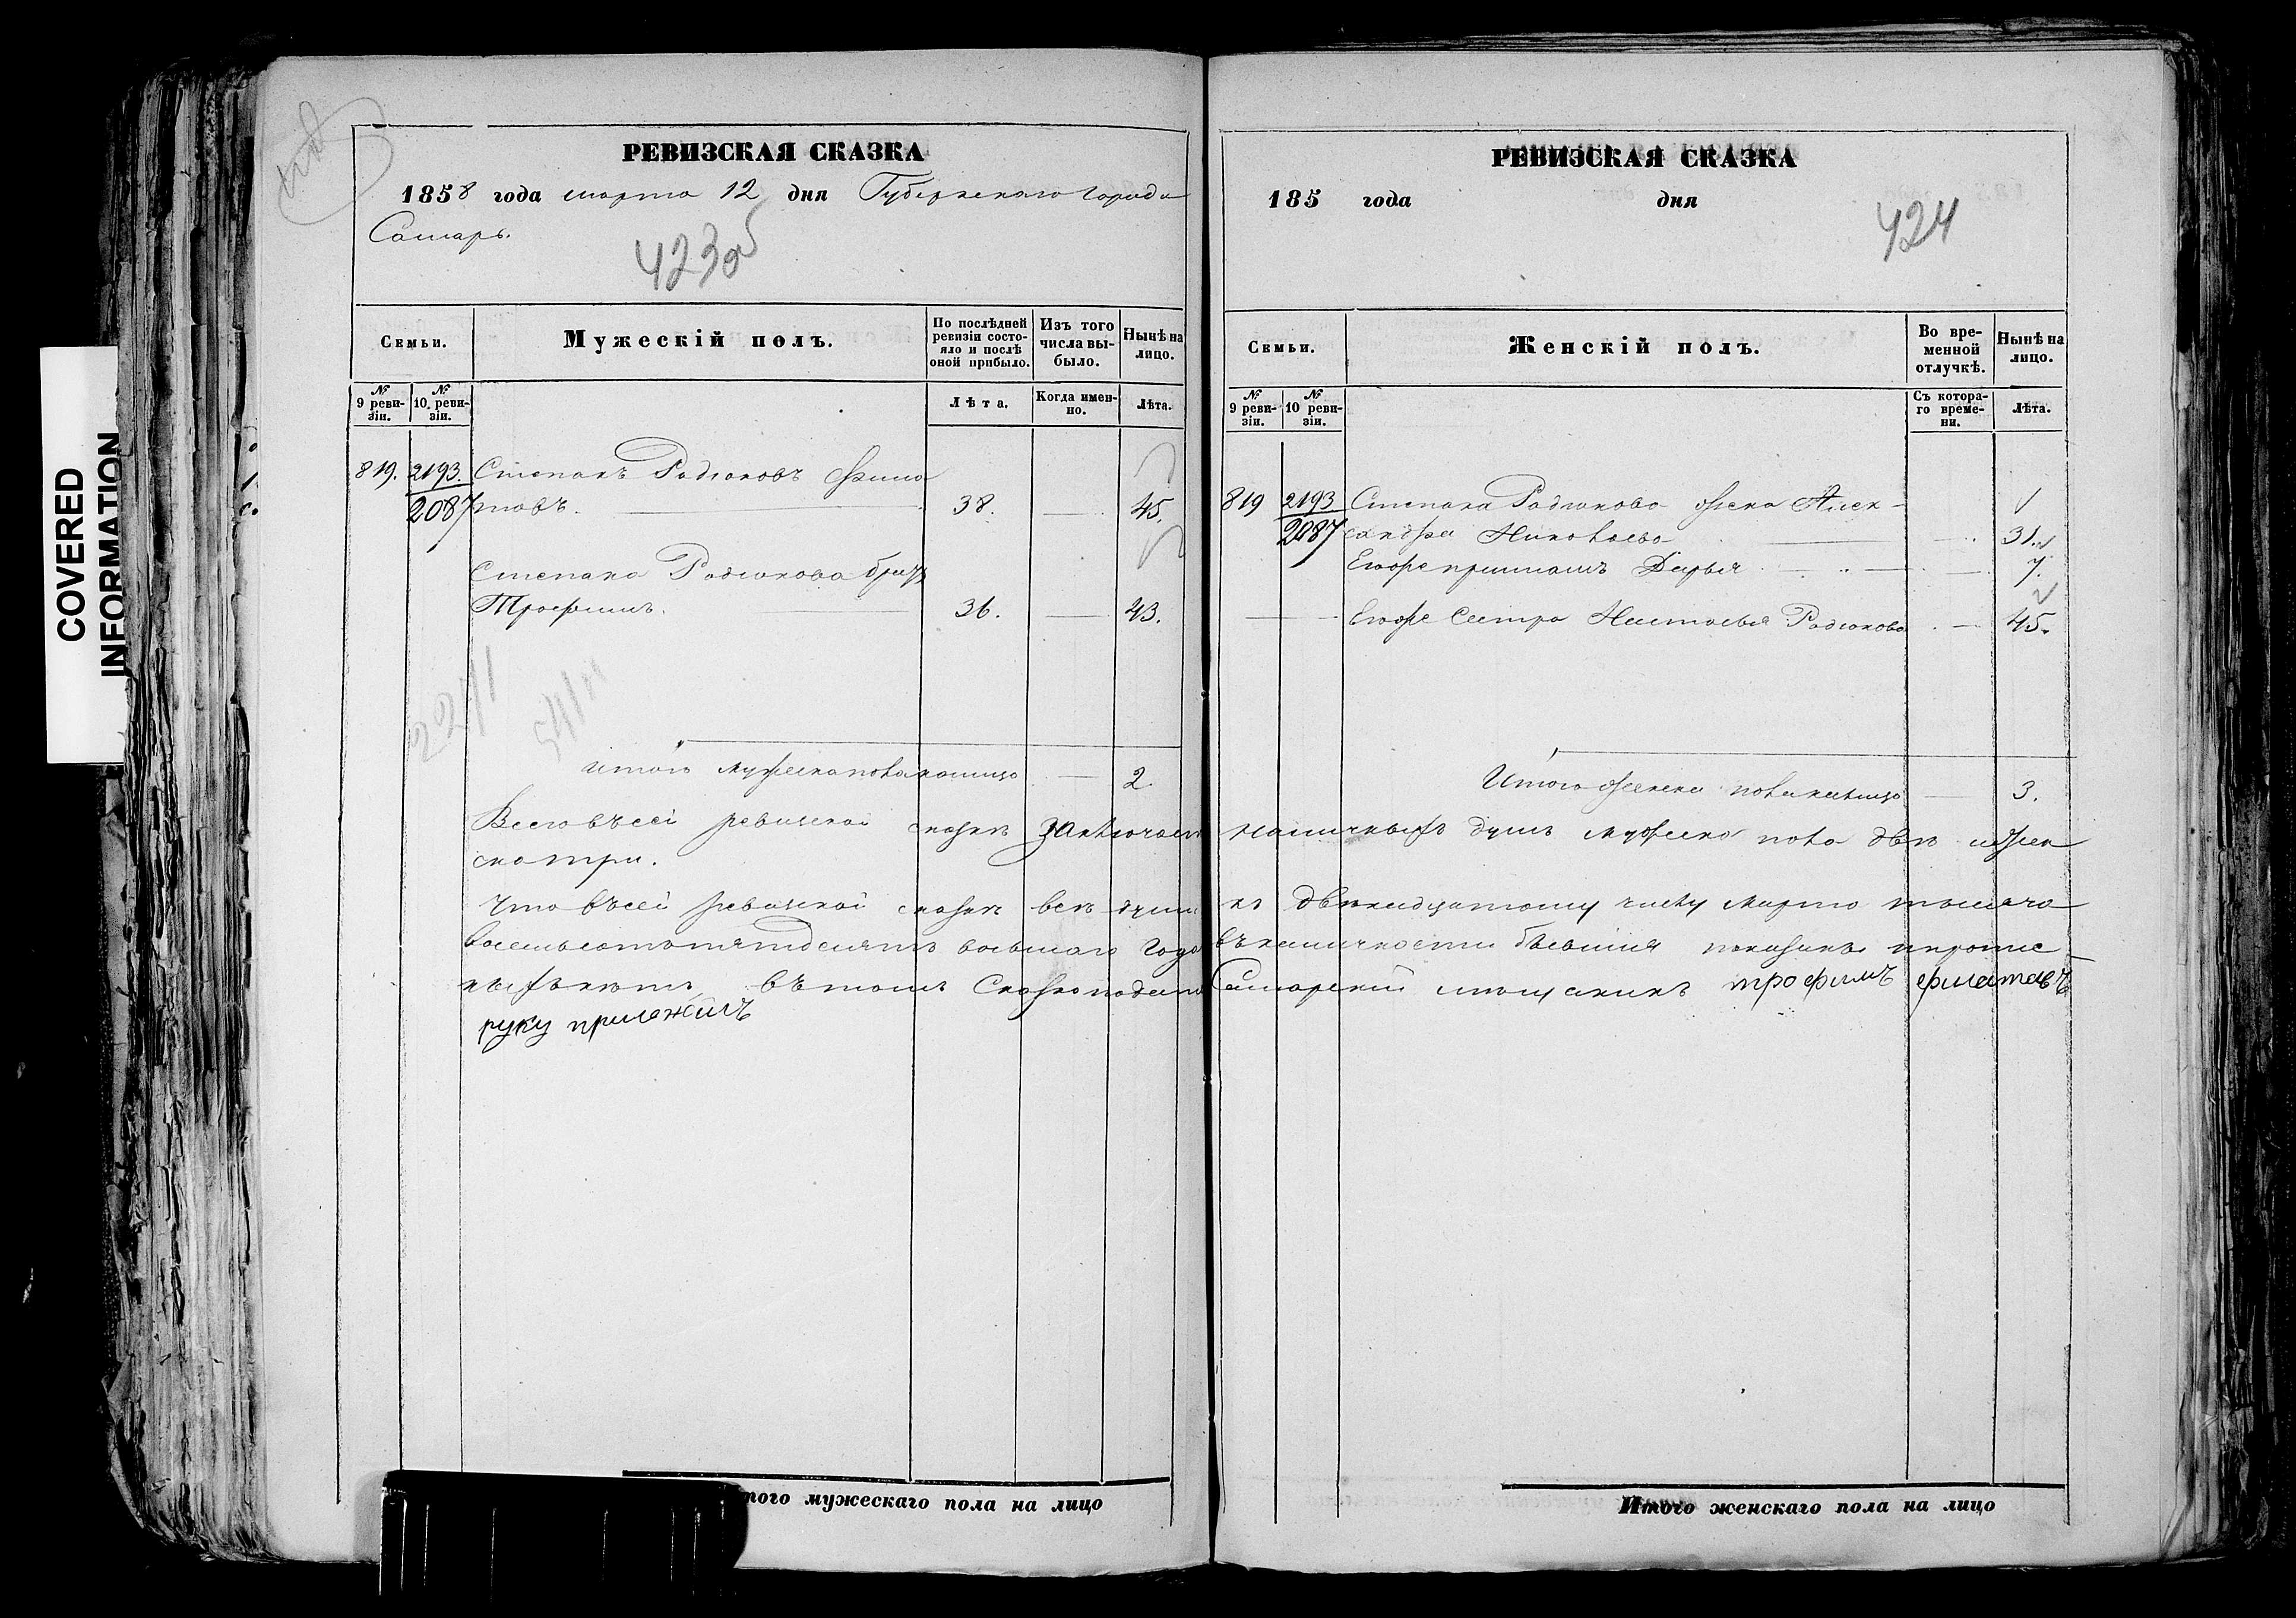 COVERED
INFORMATION
РЕВИЗСКАЯ СКАЗКА
1858 года марта 12 дня Губернскаго города
Самары.
423об
Семьи.
Мужескій полъ.
По послѣдней ревизіи состояло и послѣ оной прибыло.
Изъ того числа выбыло.
Нынѣ на лицо.
№ 9 ревизіи.
№ 10 ревизіи.
Лѣта.
Когда именно.
Лѣта.
819. 2193. Степанъ Родіоновъ Фила
2087 товъ. 38. 45.
Степана Родіонова братъ
Трофимъ. 36. 43.
22/1
Итого мужеска пола налицо 2.
РЕВИЗСКАЯ СКАЗКА
185 года дня
424
Семьи.
Женскій полъ.
Во временной отлучкѣ.
Нынѣ на лицо.
№ 9 ревизіи.
№ 10 ревизіи.
Съ котораго времени.
Лѣта.
819 2193 Степана Родіонова жена Алек-
2087 сандра Николаева 31.
Егоже приишъ Дарья 7.
Егоже Сестра Настасья Родіонова 45.
Итого женска пола налицо 3.
Всего въ сей ревизской сказкѣ заключается наличныхъ душъ мужеска пола двѣ и жен
ска три.
Что въ сей ревизской сказкѣ всѣ души къ двѣнадцатому числу марта тысяча
восемьсотъ пятдесятъ восьмаго года въ наличности бывшія показаны и пропис
ныхъ нѣтъ, въ томъ Сказкоподатель Самарскій мещанинъ трофимъ филатовъ
руку приложилъ
Итого мужескаго пола на лицо
Итого женскаго пола на лицо